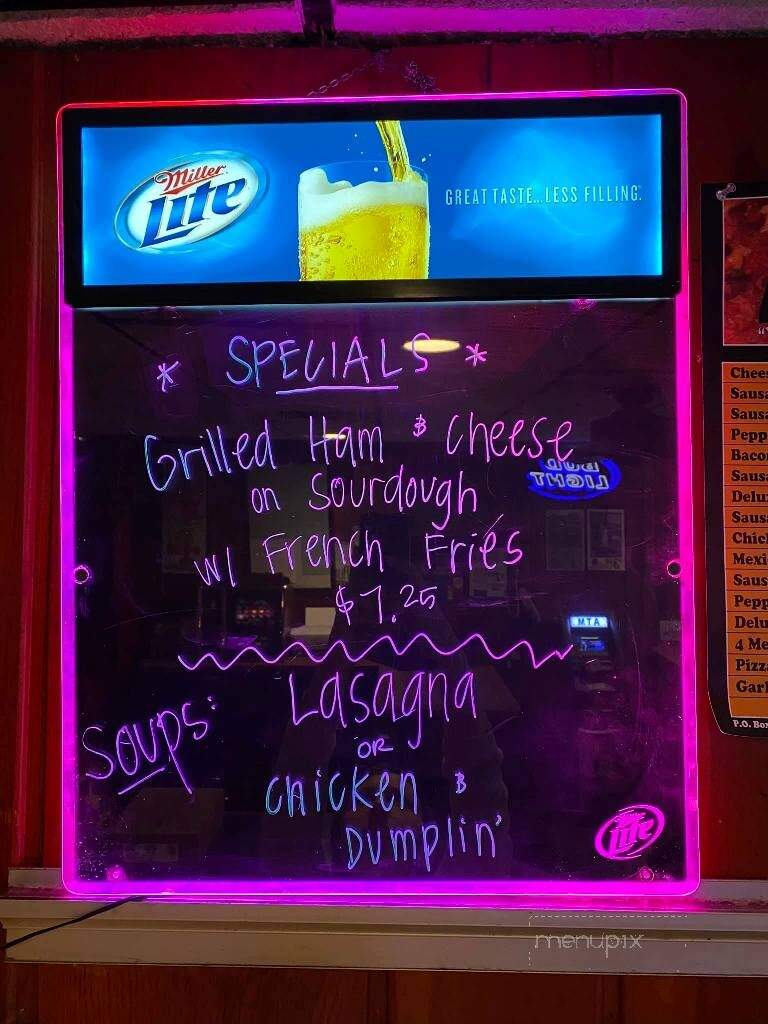 Miller
Lite
GREAT TASTE...LESS FILLING.
* SPECIALS *
Grilled Ham & Cheese
on Sourdough
w/ French Fries
$7.25
Soups:
Lasagna
OR
Chicken &
Dumplin'
BUD
LIGHT
ATM
Lite
Chees
Sausa
Sausa
Pepp
Bacon
Sausa
Delux
Sausa
Chick
Mexi
Saus
Pepp
Delu
4 Me
Pizza
Garl
P.O. Box
menupix